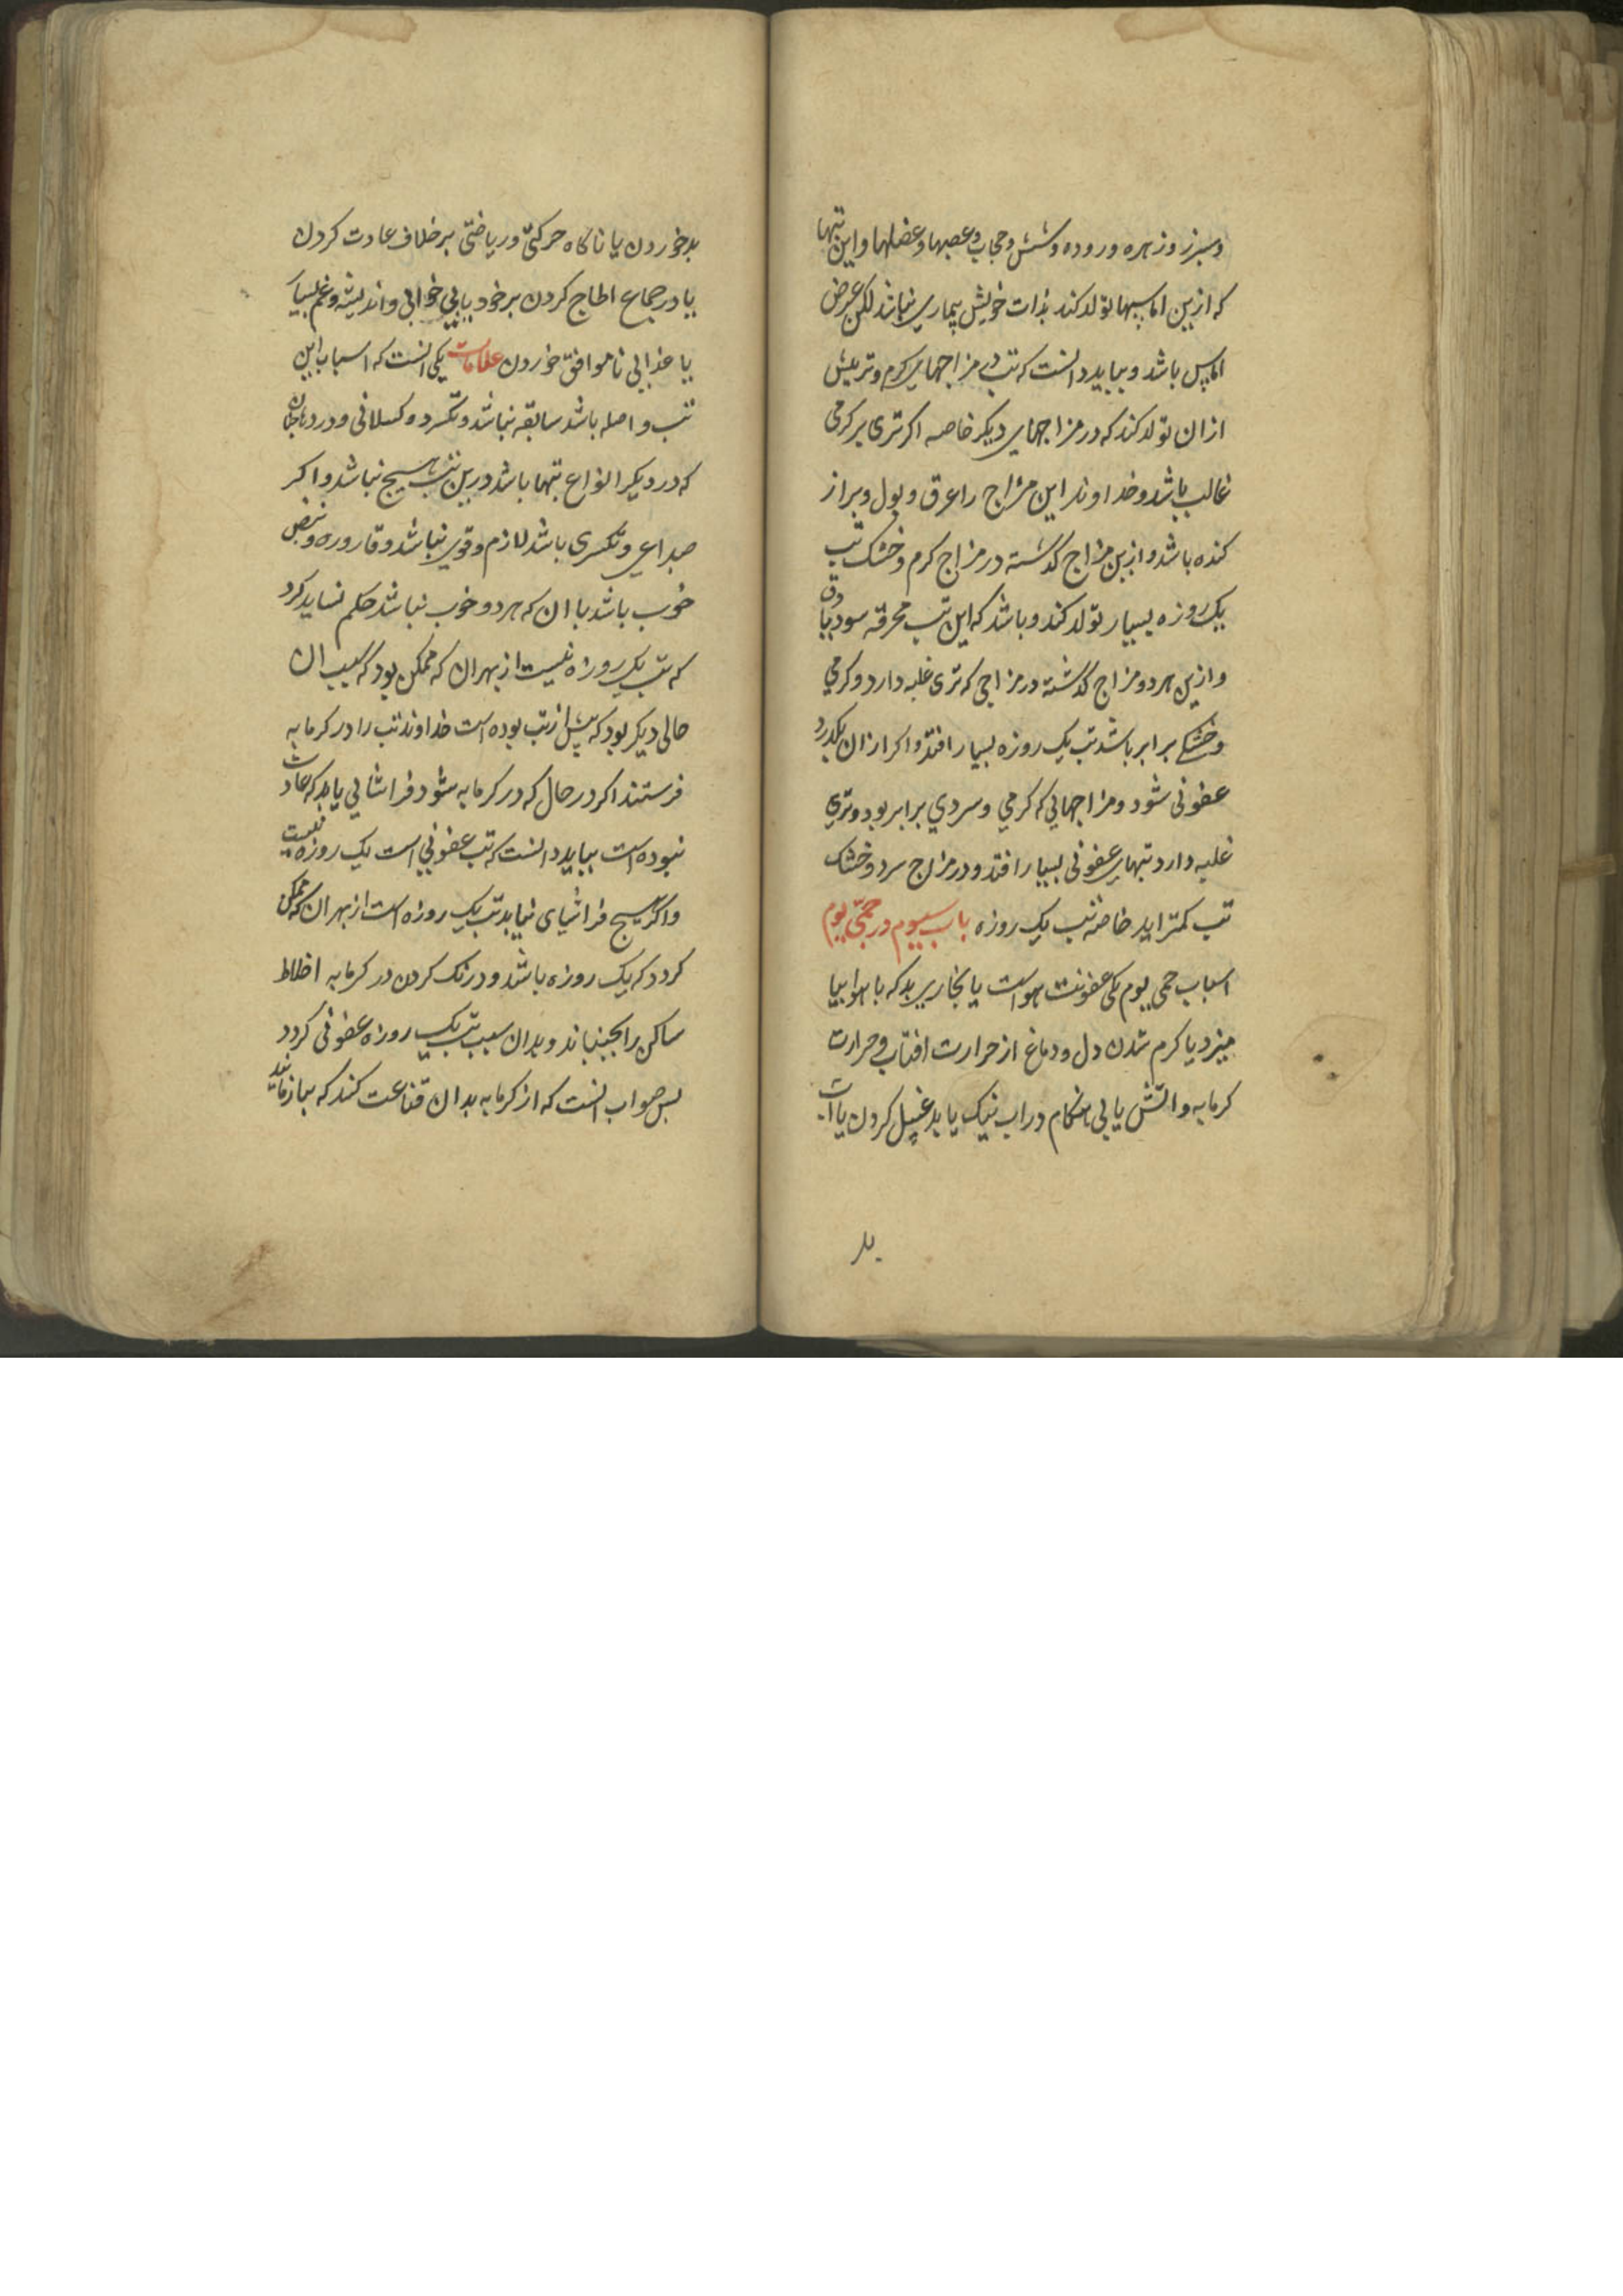 وسپرز و زهره و روده و شش و حجاب و عصبها و عضلها و این تبها
که ازین اماسها تولد کند بذات خویش بیماری نباشد لکن عرض
اماس باشد و بباید دانست که تب در مزاجهای کرم و تر بیش
ازان تولد کند که در مزاجهای دیکر خاصه اکر تری بر کرمی
غالب باشد و خداوند این مزاج را عرق و بول و براز
کنده باشد و ازین مزاج کذشته در مزاج کرم و خشک تب
یک روزه بسیار تولد کند و باشد که این تب محرقه سود یا دق
و ازین هر دو مزاج کذشته در مزاجی که تری غلبه دارد و کرمی
و خشکی برابر باشد تب یک روزه بسیار افتد و اکر ازان بکذرد
عفونی شود و مزاجهایی که کرمی و سردی برابر بود و تری
غلبه دارد تبهای عفونی بسیار افتد و در مزاج سرد و خشک
تب کمتر اید خاصه تب یک روزه باب سیوم در حمی یوم
اسباب حمی یوم یکی عفونت هواست یا بخاریر بد که با هوا بیا
میزد یا کرم شدن دل و دماغ از حرارت افتاب و حرارت
کرمابه و اتش یا بی هنکام در اب نیک یا بد غسل کردن یا اب
بد
بد خوردن یا ناکاه حرکتی و ریاضتی بر خلاف عادت کردن
یا در جماع الحاح کردن بر خود یا بی خوابی و اندیشه و غم بسیار
یا غذایی ناموافق خوردن علامات یکی انست که اسباب این
تب و اصله باشد سابقه نباشد و تکسر و کسلانی و درد
که در دیکر انواع تبها باشد درین تب هیچ نباشد و اکر
صداعی و تکسری باشد لازم و قوی نباشد و قاروره و نبض
خوب باشد با ان که هر دو خوب نباشد حکم نشاید کرد
که تب یک روزه نیست از بهر ان که ممکن بود که سبب ان
حالی دیکر بود که پیش از تب بوده است خداوند تب را در کرمابه
فرستند اکر در حال که در کرمابه شود فراشایی یابد که عادت
نبوده است بباید دانست که تب عفونی است یک روزه نیست
و اکر هیچ فراشیای نیابد تب یک روزه است از بهر ان که ممکن
کردد که یک روزه باشد و درنک کردن در کرمابه اخلاط
ساکن را بجنباند و بدان سبب تب یک روزه عفونی کردد
بس صواب انست که از کرمابه بدان قناعت کنند که بیازمایند